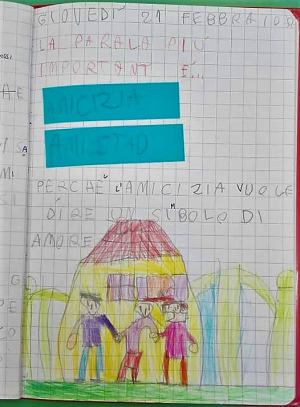 GIOVEDÍ 21 FEBBRAIO
LA PAROLA PIÚ
IMPORTANT É...
AMICIZIA
AMISTAD
PERCHÉ L'AMICIZIA VUOLE
DIRE UN SIMBOLO DI
AMORE